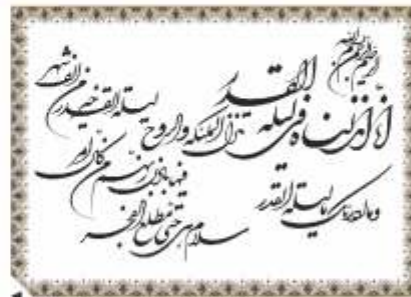 بسم الله الرحمن الرحیم
انا انزلناه فی لیلة القدر
وما ادریک ما لیلة القدر
لیلة القدر خیر من الف شهر
تنزل الملئکة والروح
فیها باذن ربهم من کل امر
سلام هی حتی مطلع الفجر